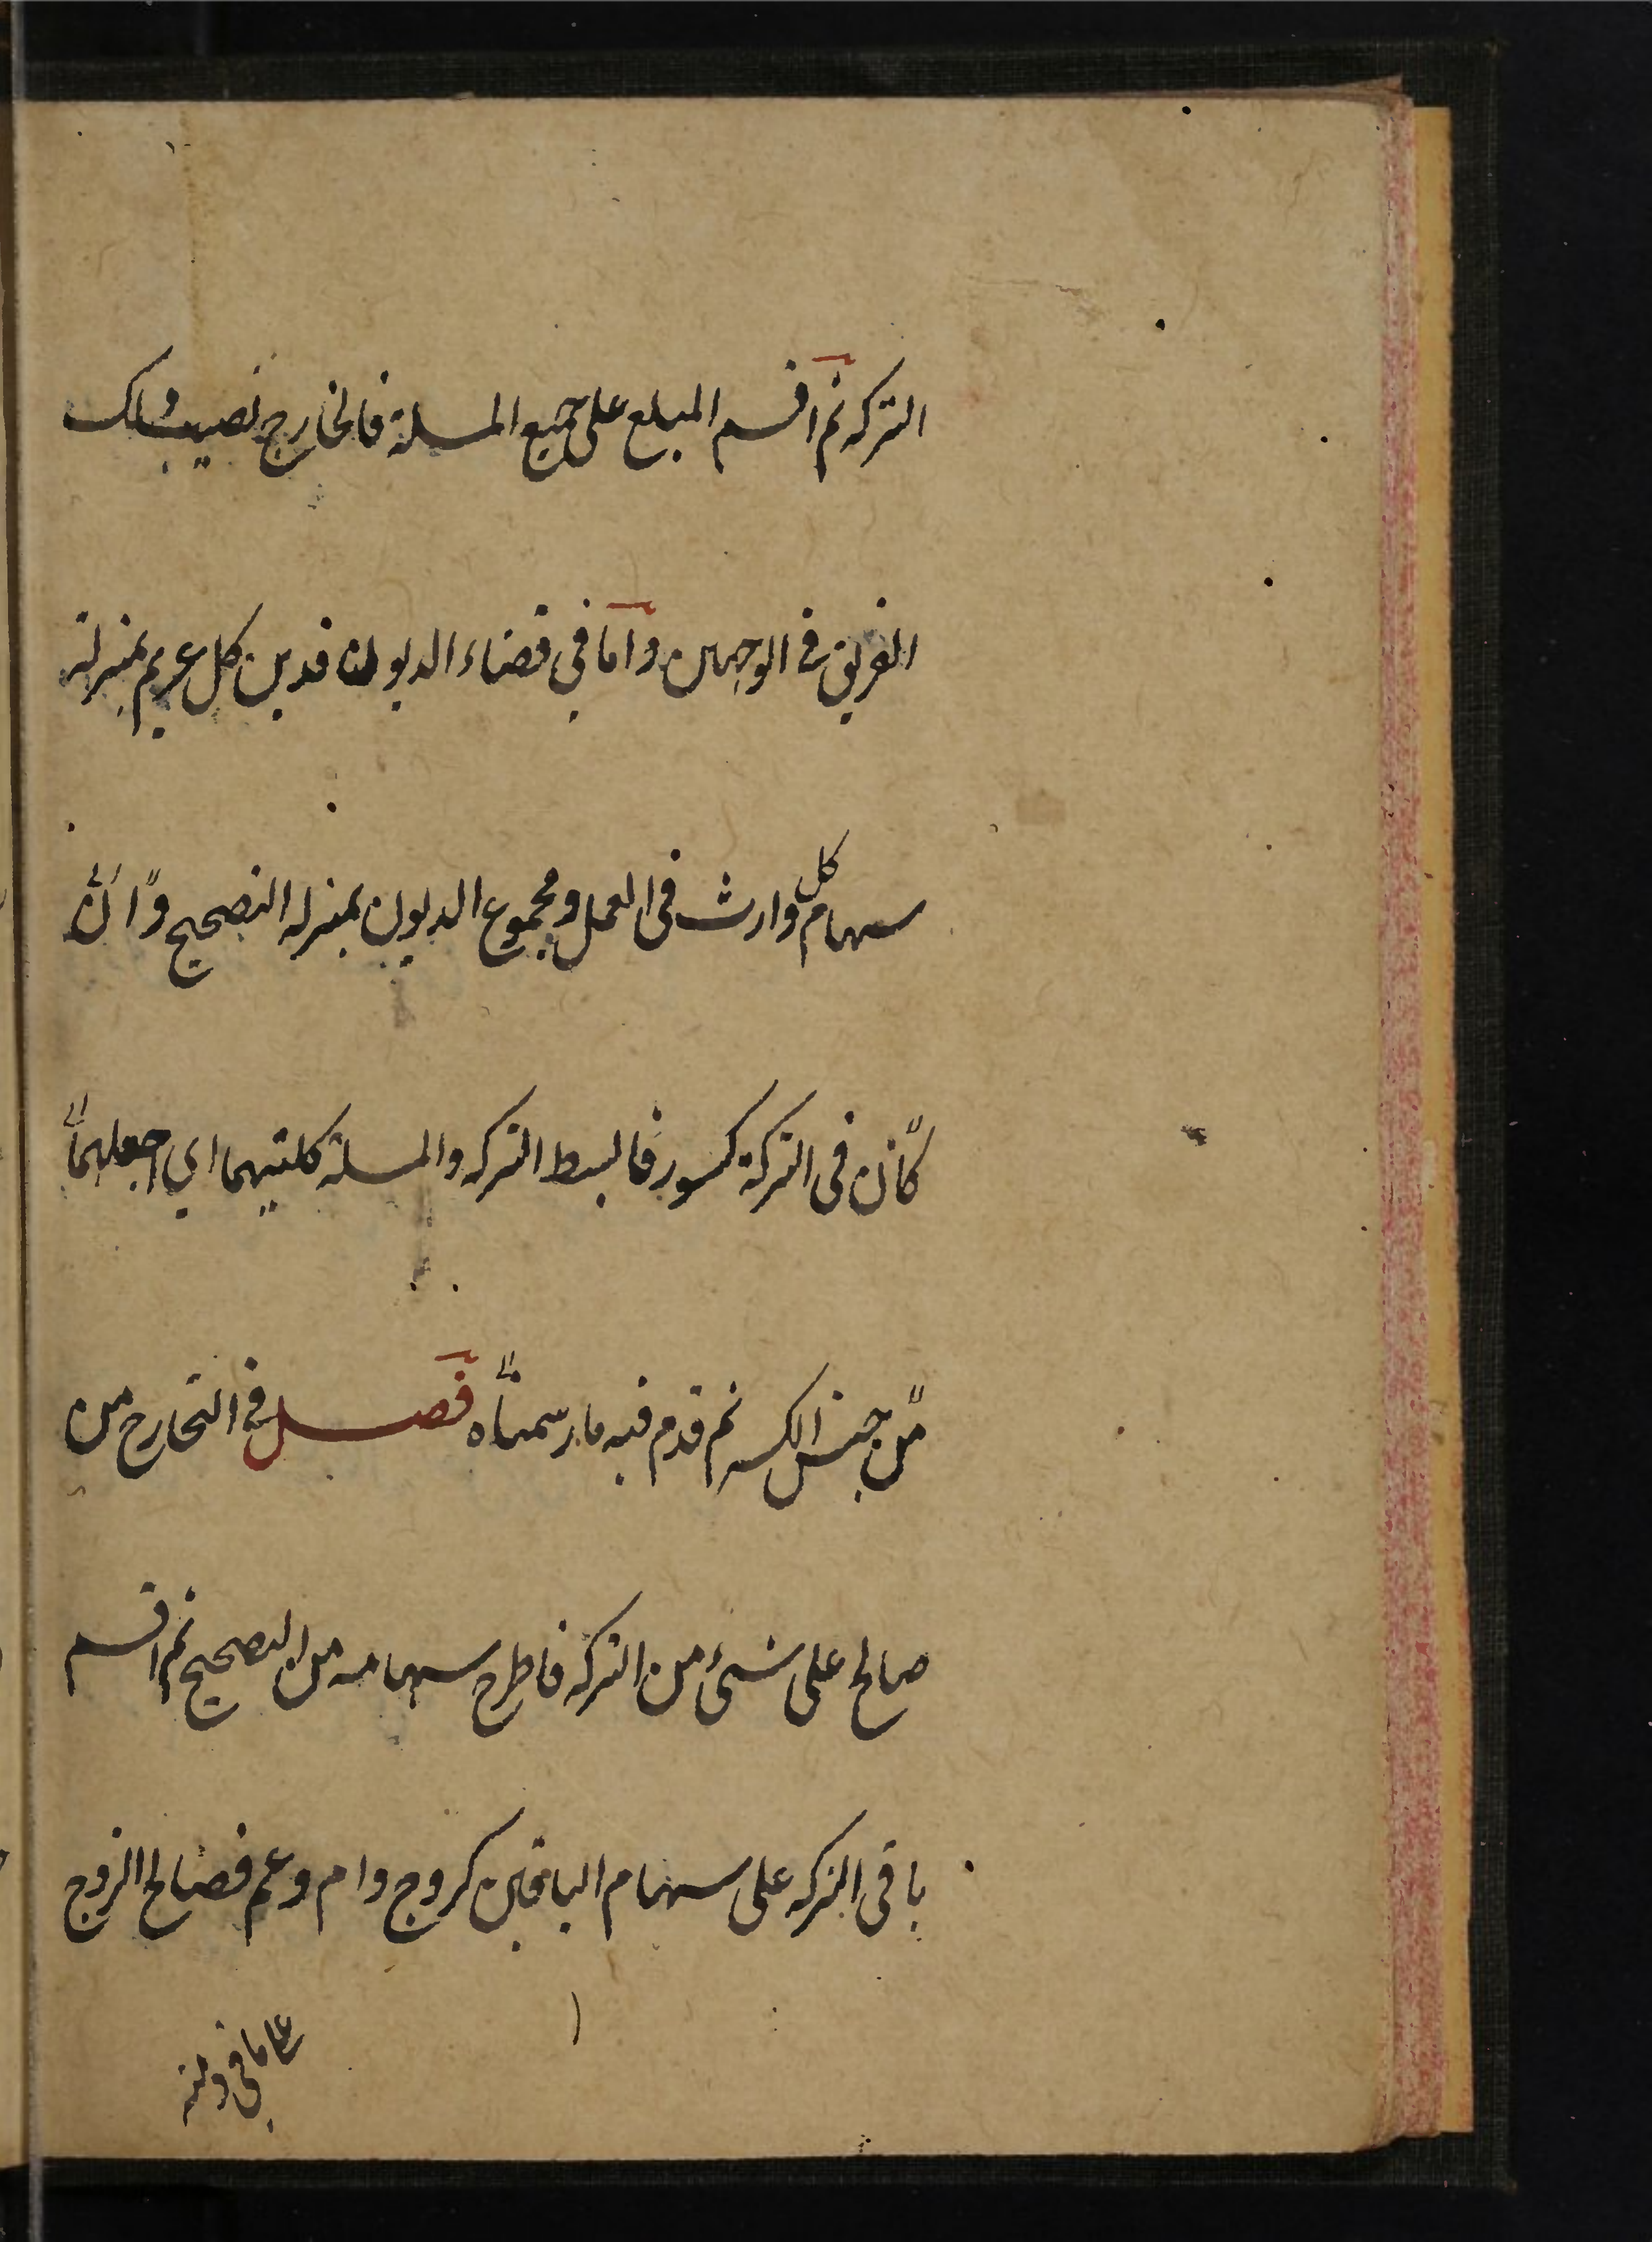 التركه ثم اقسم المبلغ على جميع المسئلة فالخارج نصيب ذلك
الفريق فى الوجهين واما في قضاء الديون فدين كل غريم بمنزلة
سهام كل وارث فى العمل ومجموع الديون بمنزله التصحيح وان
كان فى التركة كسور فابسط التركه والمسئلة كلتيهما اي اجعلهما
من جنس الكسر ثم قدم فيه ما رسمناه فصل في التخارج من
صالح على شىء من التركه فاطرح سهامه من التصحيح ثم اقسم
باقى التركه على سهام الباقين كزوج وام وعم فصالح الزوج
على ما في ذمته